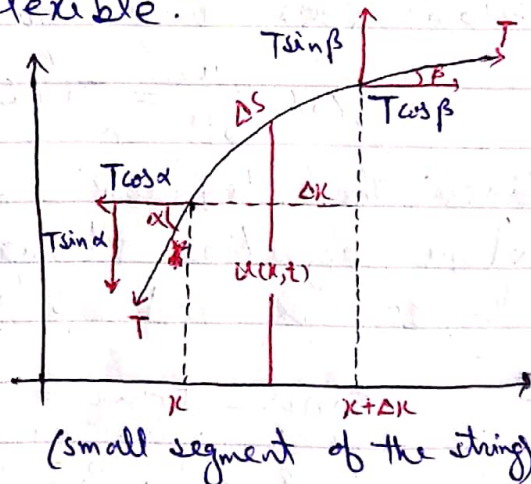 flexible.
Tsinβ
T
β
Tcosβ
ΔS
Tcosα
Δx
α
Tsinα
u(x,t)
T
x
x+Δx
(small segment of the string)